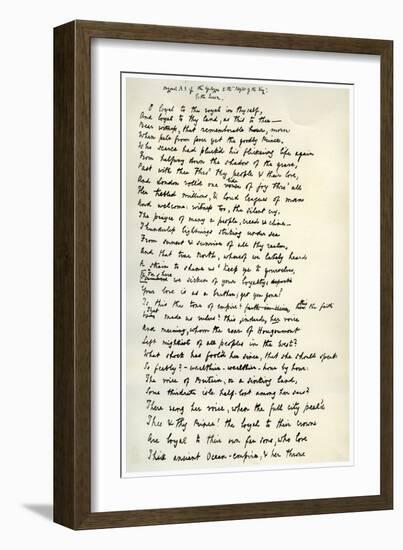 Original M.S. of the Epilogue to the "Idylls of the King".
To the Queen.
O loyal to the royal in thyself,
And loyal to thy land, as this to thee—
Bear witness, that rememberable hour, morn
When pale from fever yet the goodly Prince,
Who scarce had pluck'd his flickering life again
From halfway down the shadow of the grave,
Past with thee thro' thy people & their love,
And London roll'd one tide of joy thro' all
Her trebled millions, & loud leagues of man
And welcome: witness too, the silent cry,
The prayer of many a people, creed & clime—
Thunderless lightnings striking under sea
From sunset & sunrise of all thy realm,
And that true North, whereof we lately heard
A strain to shame us 'keep ye to yourselves,
So loyal we sicken of your loyalty
Your love is as a brother's, get you gone!
Is this the tone of empire? faith in him, the faith
That made us rulers? this indeed, her voice
And meaning, whom the roar of Hougoumont
Left mightiest of all peoples in the West?
What shock has fool'd her since, that she should speak
So feebly?—wealthier—wealthier—hour by hour:
The voice of Britain, or a sinking land,
Some third-rate isle half-lost among her seas?
There rang her voice, when the full city peal'd
Thee & thy Prince! the loyal to their crowns
Are loyal to their own far sons, who love
Their ancient Ocean-empire, & her throne